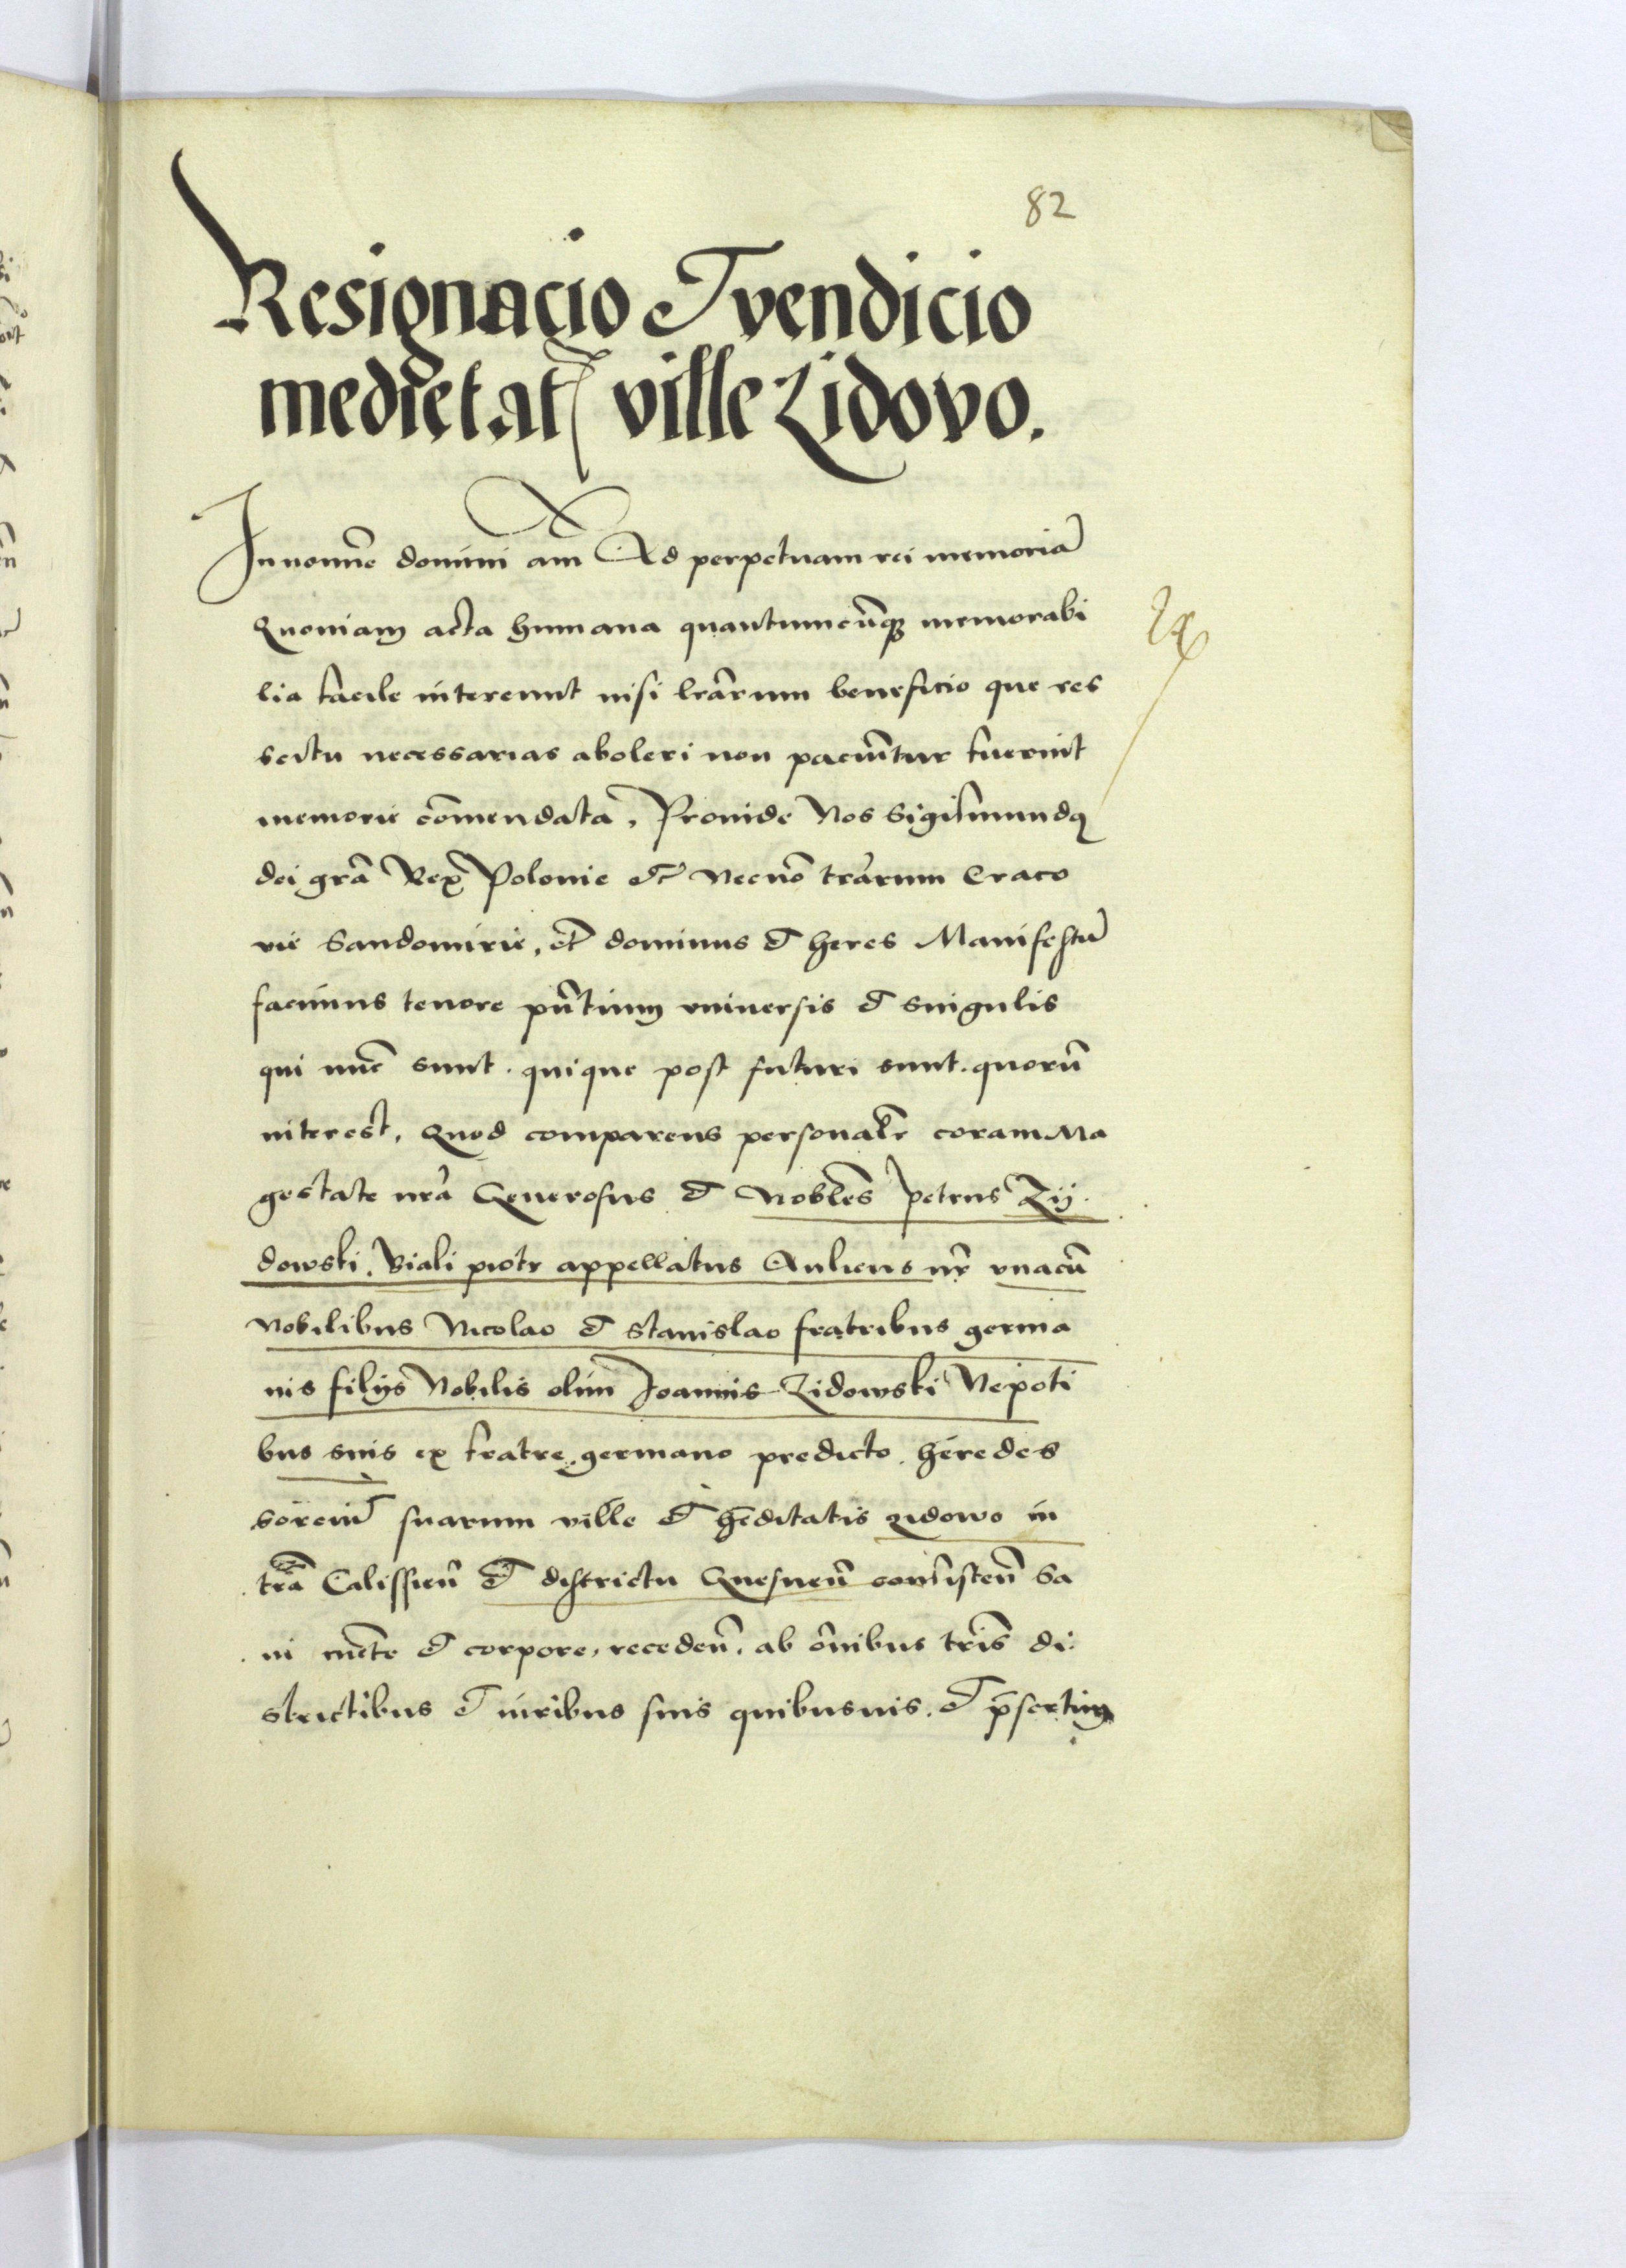 82
Resignacio et vendicio
medietatꝭ ville Zidovo.
In nomīe domini am̄ Ad perpetuam rei memoriā
Quoniam acta humana quantumcūqꝫ memorabi
lia facile intereunt nisi lr̄arum beneficio que res
scitu necessarias aboleri non paciūtur fuerint
memorie cōmendata, Proinde Nos Sigismundꝰ
dei grā Rex Polonie etc̄ Necnō tr̄arum Craco
vie Sandomirie, etc̄ dominus et heres Manifestū
facimus tenore pn̄tium vniuersis et singulis
qui nūc sunt. quique post futuri sunt. quorū
interest, Quod comparens personalr̄ coram Ma
gestate nr̄a Generosus et Nobles̄ Petrus Zij.
dowski. Biali piotr appellatus Aulicus nr̄ vnacū
Nobilibus Nicolao et Stanislao fratribus germa
nis filijs Nobilis olim Joannis Zidowski Nepoti
bus suis ex fratre germano predicto. heredes
suarum ville et hēditatis Zidowo in
tr̄a Calissień et districtu Gnesneń consisteń Sa
ni mēte et corpore, recedeń. ab om̄ibus tr̄is di.
strictibus et iuribus suis quibusuis. et p̄sertim